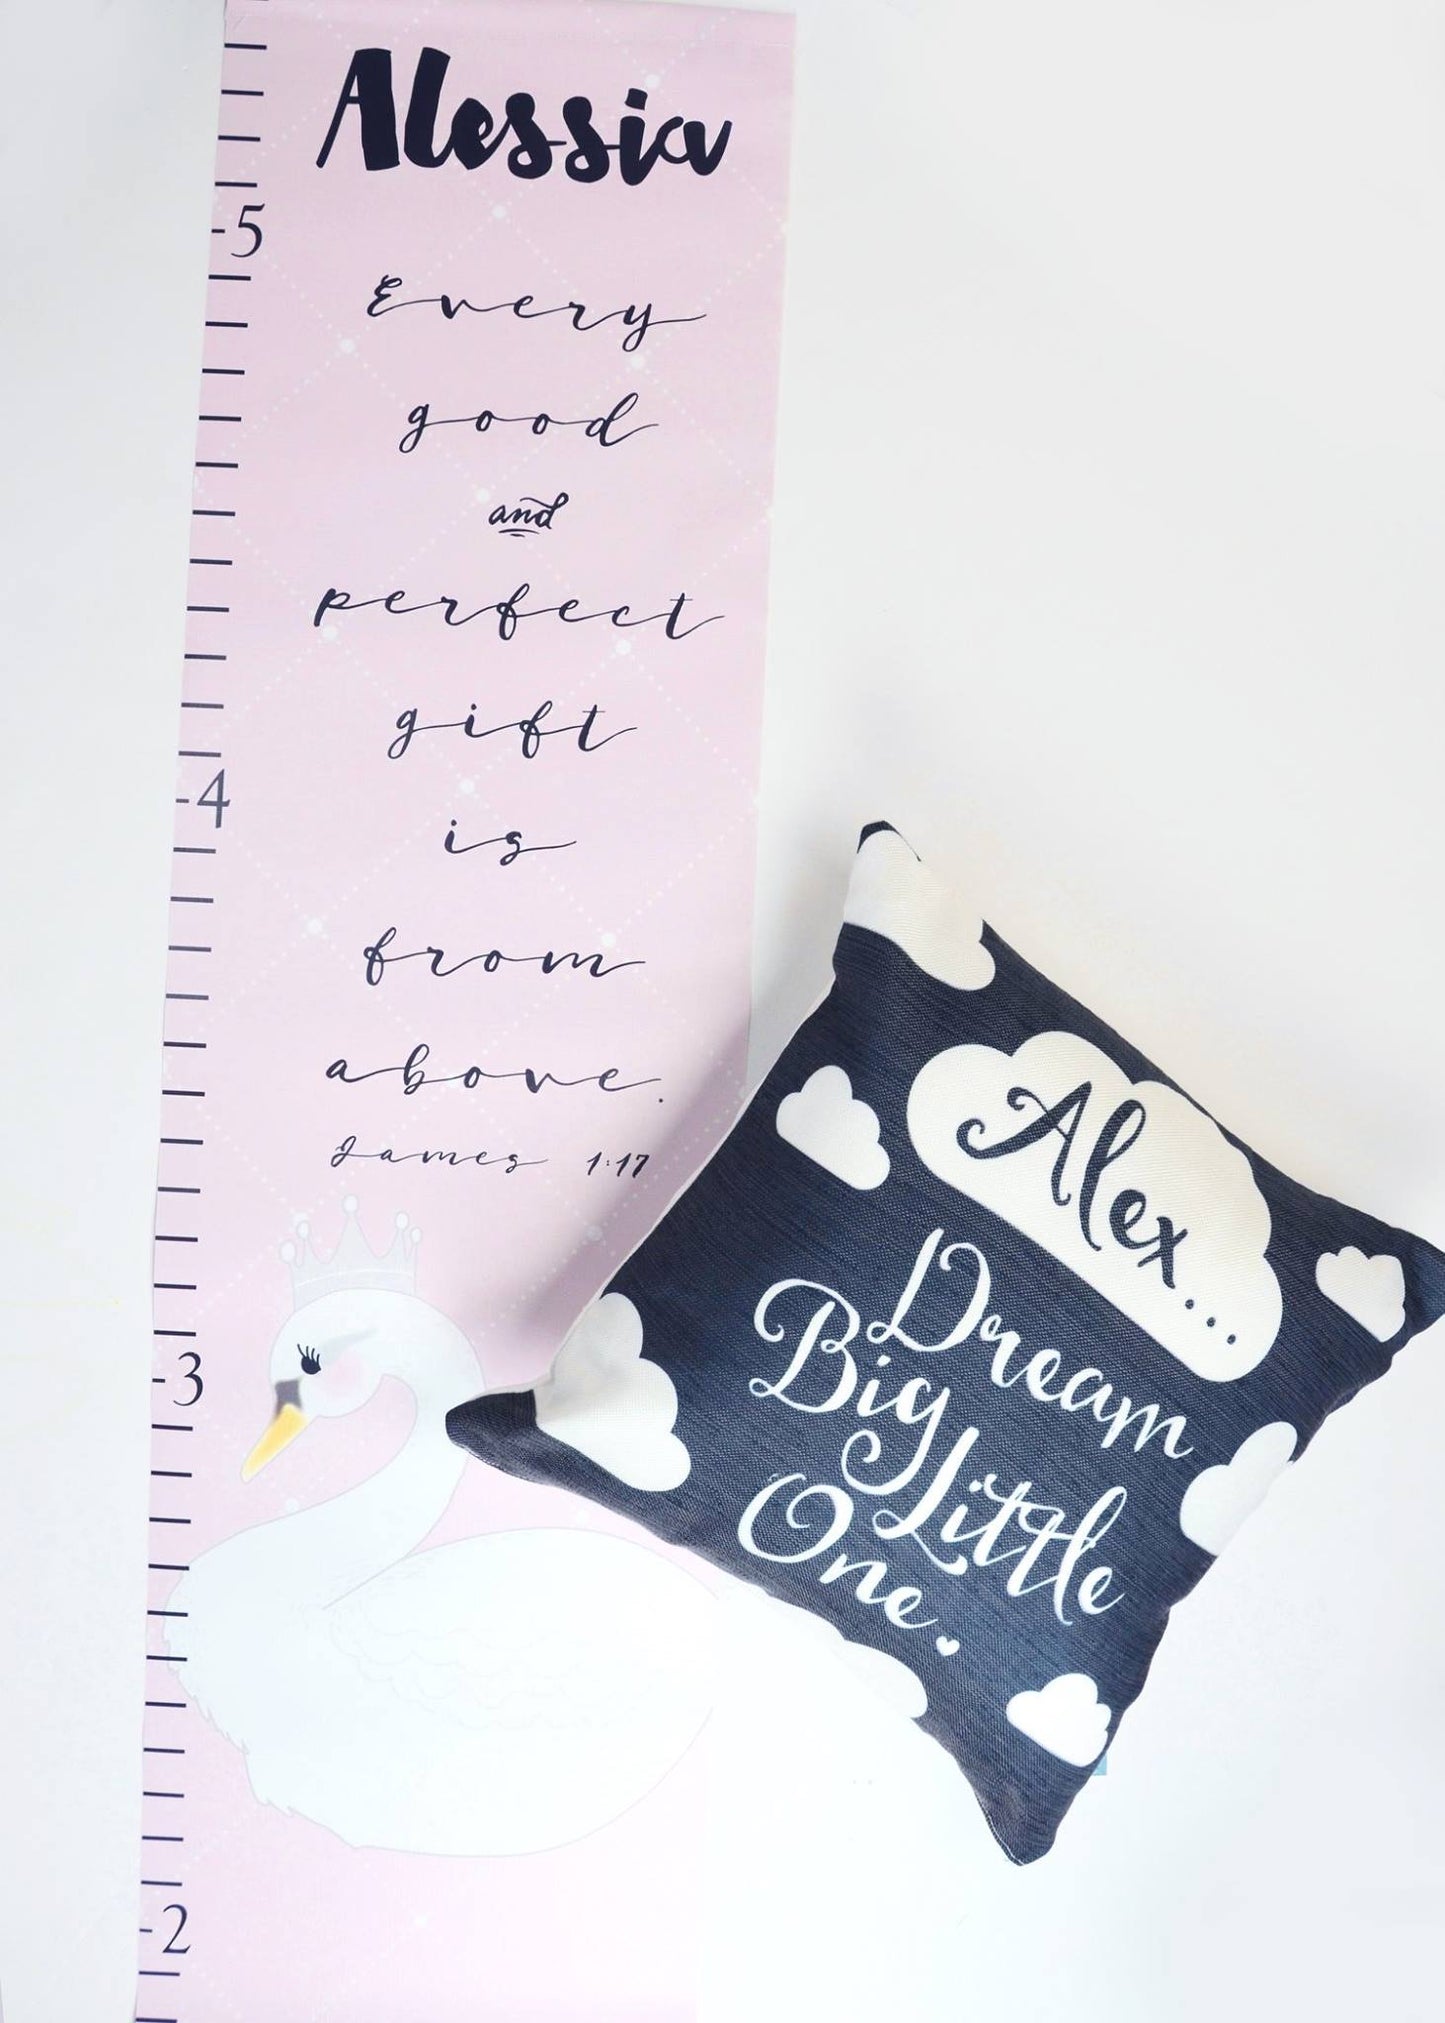 Alessia
-5
Every
good
and
perfect
gift
-4
is
from
above.
James 1:17
-3
-2
Alex...
Dream
Big Little
One.